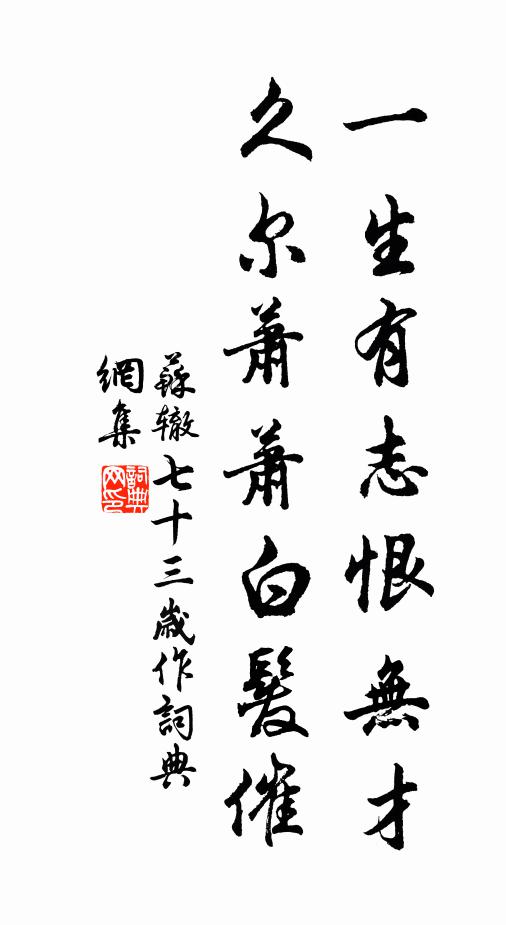 一生有志恨無才
久尔蕭蕭白髮催
蘇轍七十三歲作詞典
網集
詞典
网印